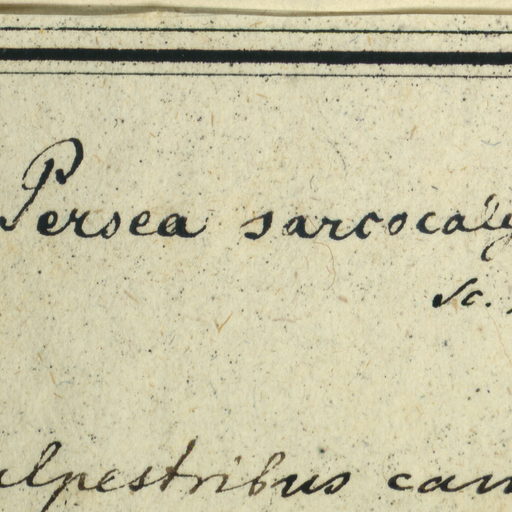 Persea sarcocaly
Sc.
alpestribus cam